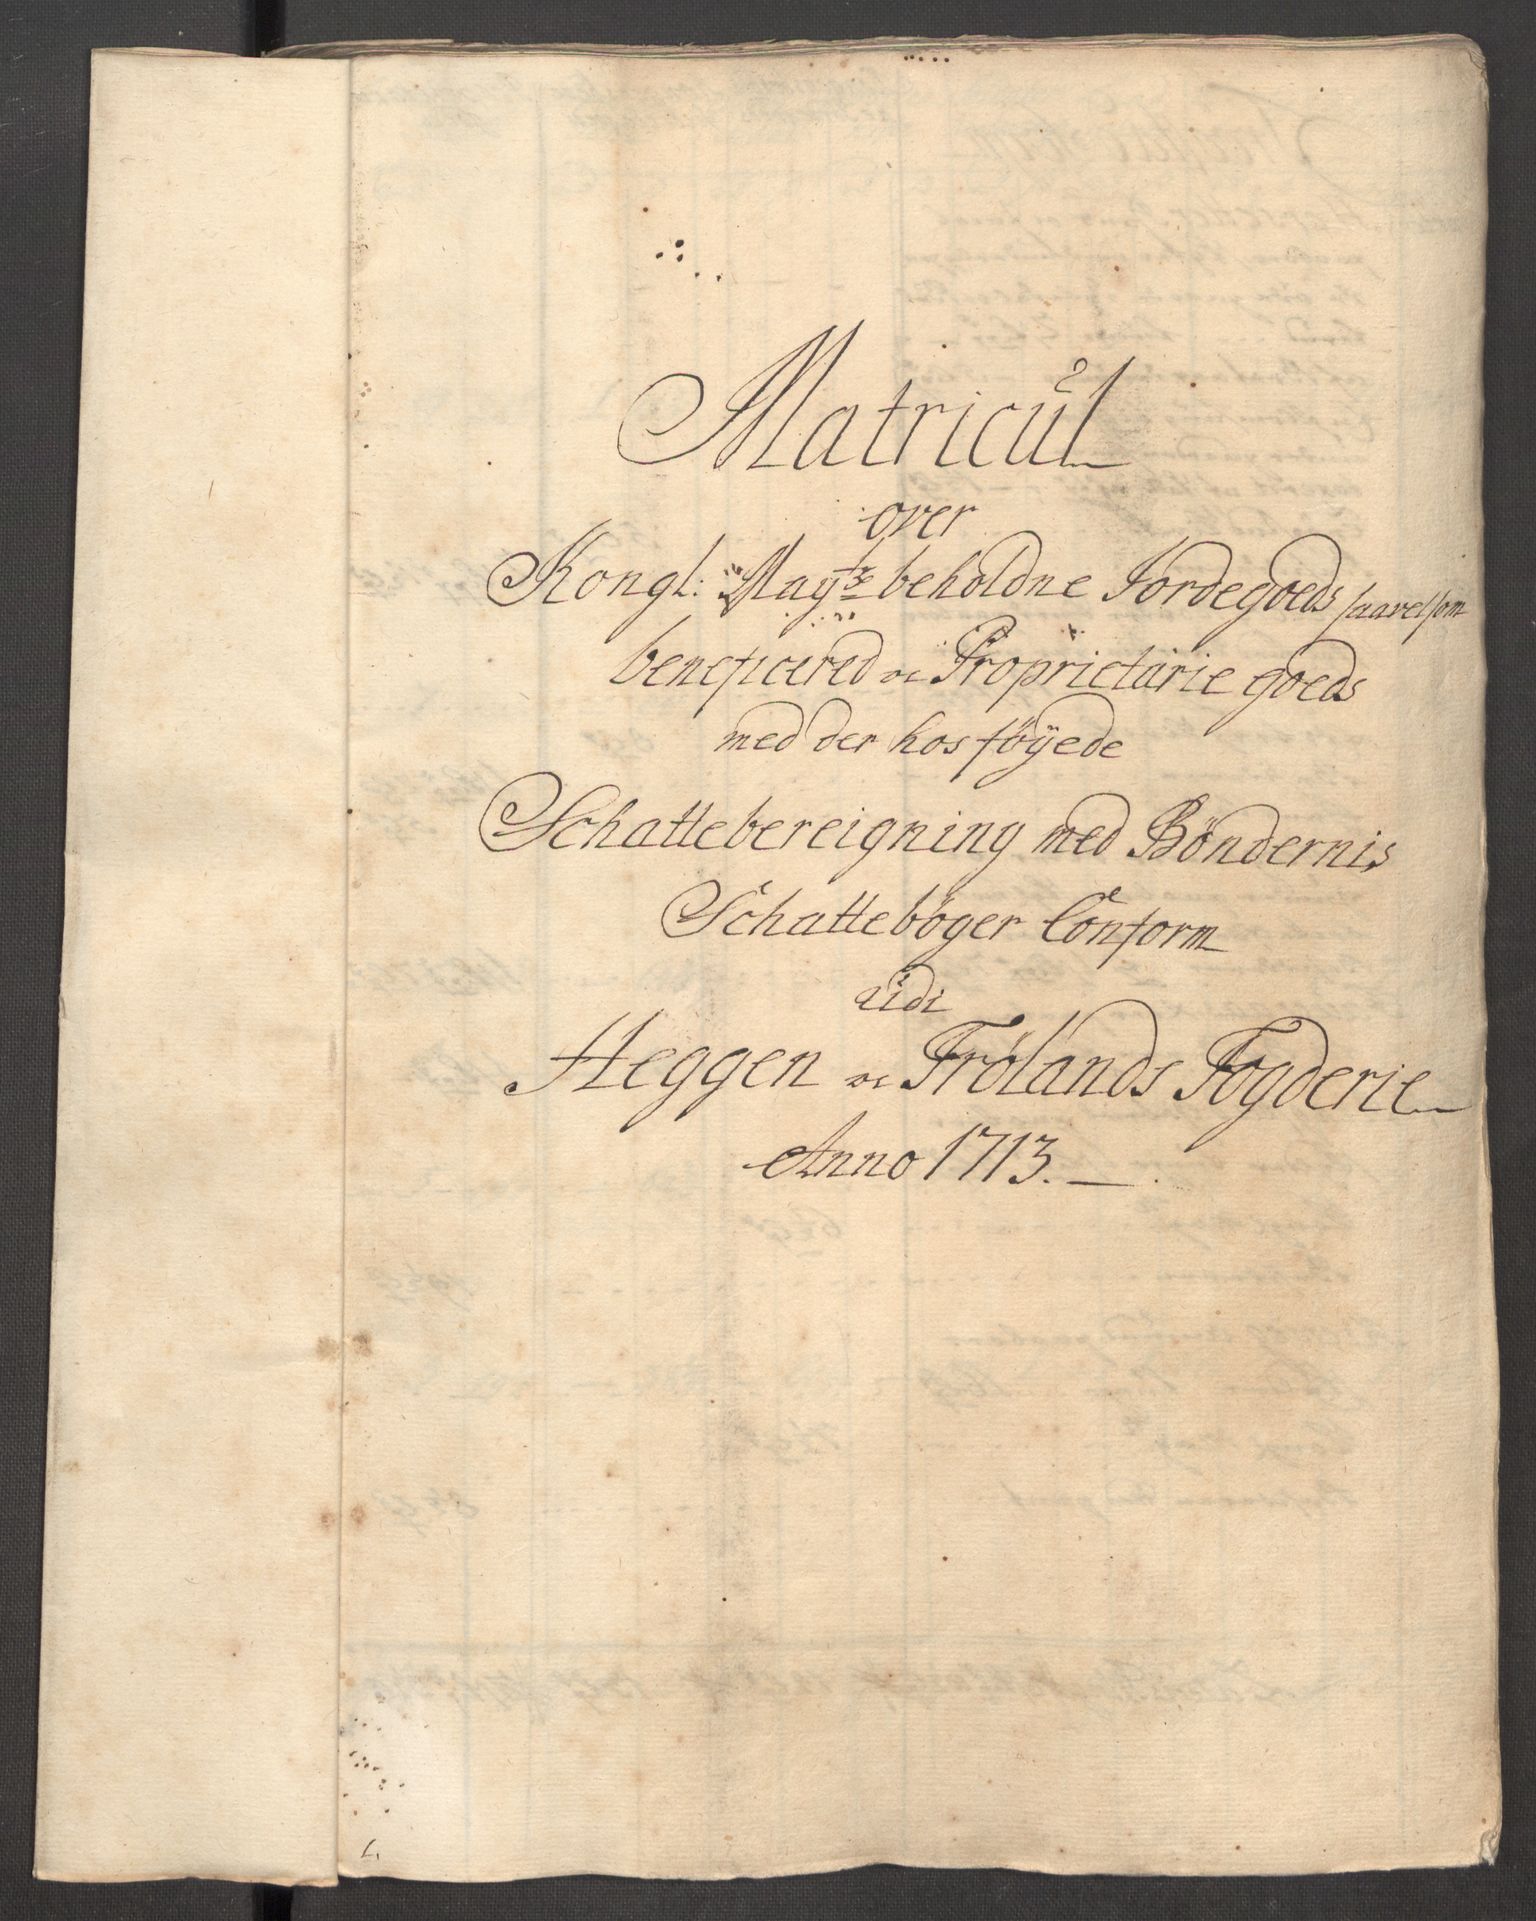 Matricul
over
Kongl: Mayts beholdne Jordegoeds saavelsom
beneficered oc Proprietarie goeds
med der hos føyede
Schattebereigning med Böndernis
Schattebøger Conform
udi
Heggen oc Frølands Fogderie
Anno 1713.
1.